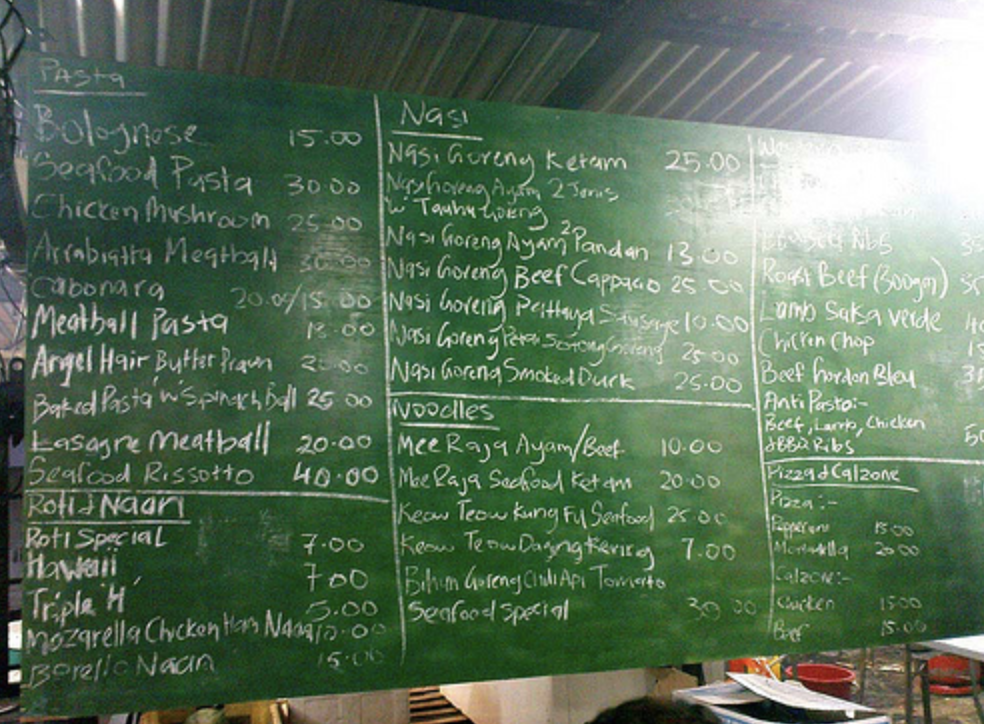 Pasta
Bolognese 15.00
Seafood Pasta 30.00
Chicken Mushroom 25.00
Arrabiatta Meatball 30.00
Cabonara 20.00/15.00
Meatball Pasta
Angel Hair Butter Prawn
Baked Pasta W Spinach Ball 25.00
Lasagne Meatball 20.00
Seafood Rissotto 40.00
Roti & Naan
Roti Special 7.00
Hawaii 7.00
Triple 'H' 5.00
Mozarella Chicken Ham Naan 10.00
Naan 15.00
Nasi
Nasi Goreng Ketam 25.00
Nasi Goreng Ayam 2 Jenis
W Tauhu Goreng
Nasi Goreng Ayam 2 Pandan 13.00
Nasi Goreng Beef Cappaco 25.00
Nasi Goreng Pattaya Sausage 10.00
Nasi Goreng Petai Sotong Goreng 25.00
Nasi Goreng Smoked Duck 25.00
Noodles
Mee Raja Ayam/Beef 10.00
Mee Raja Seafood Ketam 20.00
Keow Teow Kung Fu Seafood 25.00
Keow Teow Daging Kering 7.00
Bihun Goreng Cili Api Tomato
Seafood Special 30.00
Ribs
Roast Beef (300gm)
Lamb Salsa Verde
Chicken Chop
Beef Gordon Bleu
Anti Pasto:-
Beef, Lamb, Chicken
& BBQ Ribs
Pizza & Calzone
Pizza:-
Pepperoni 15.00
20.00
Calzone:-
Chicken 15.00
Beef 15.00